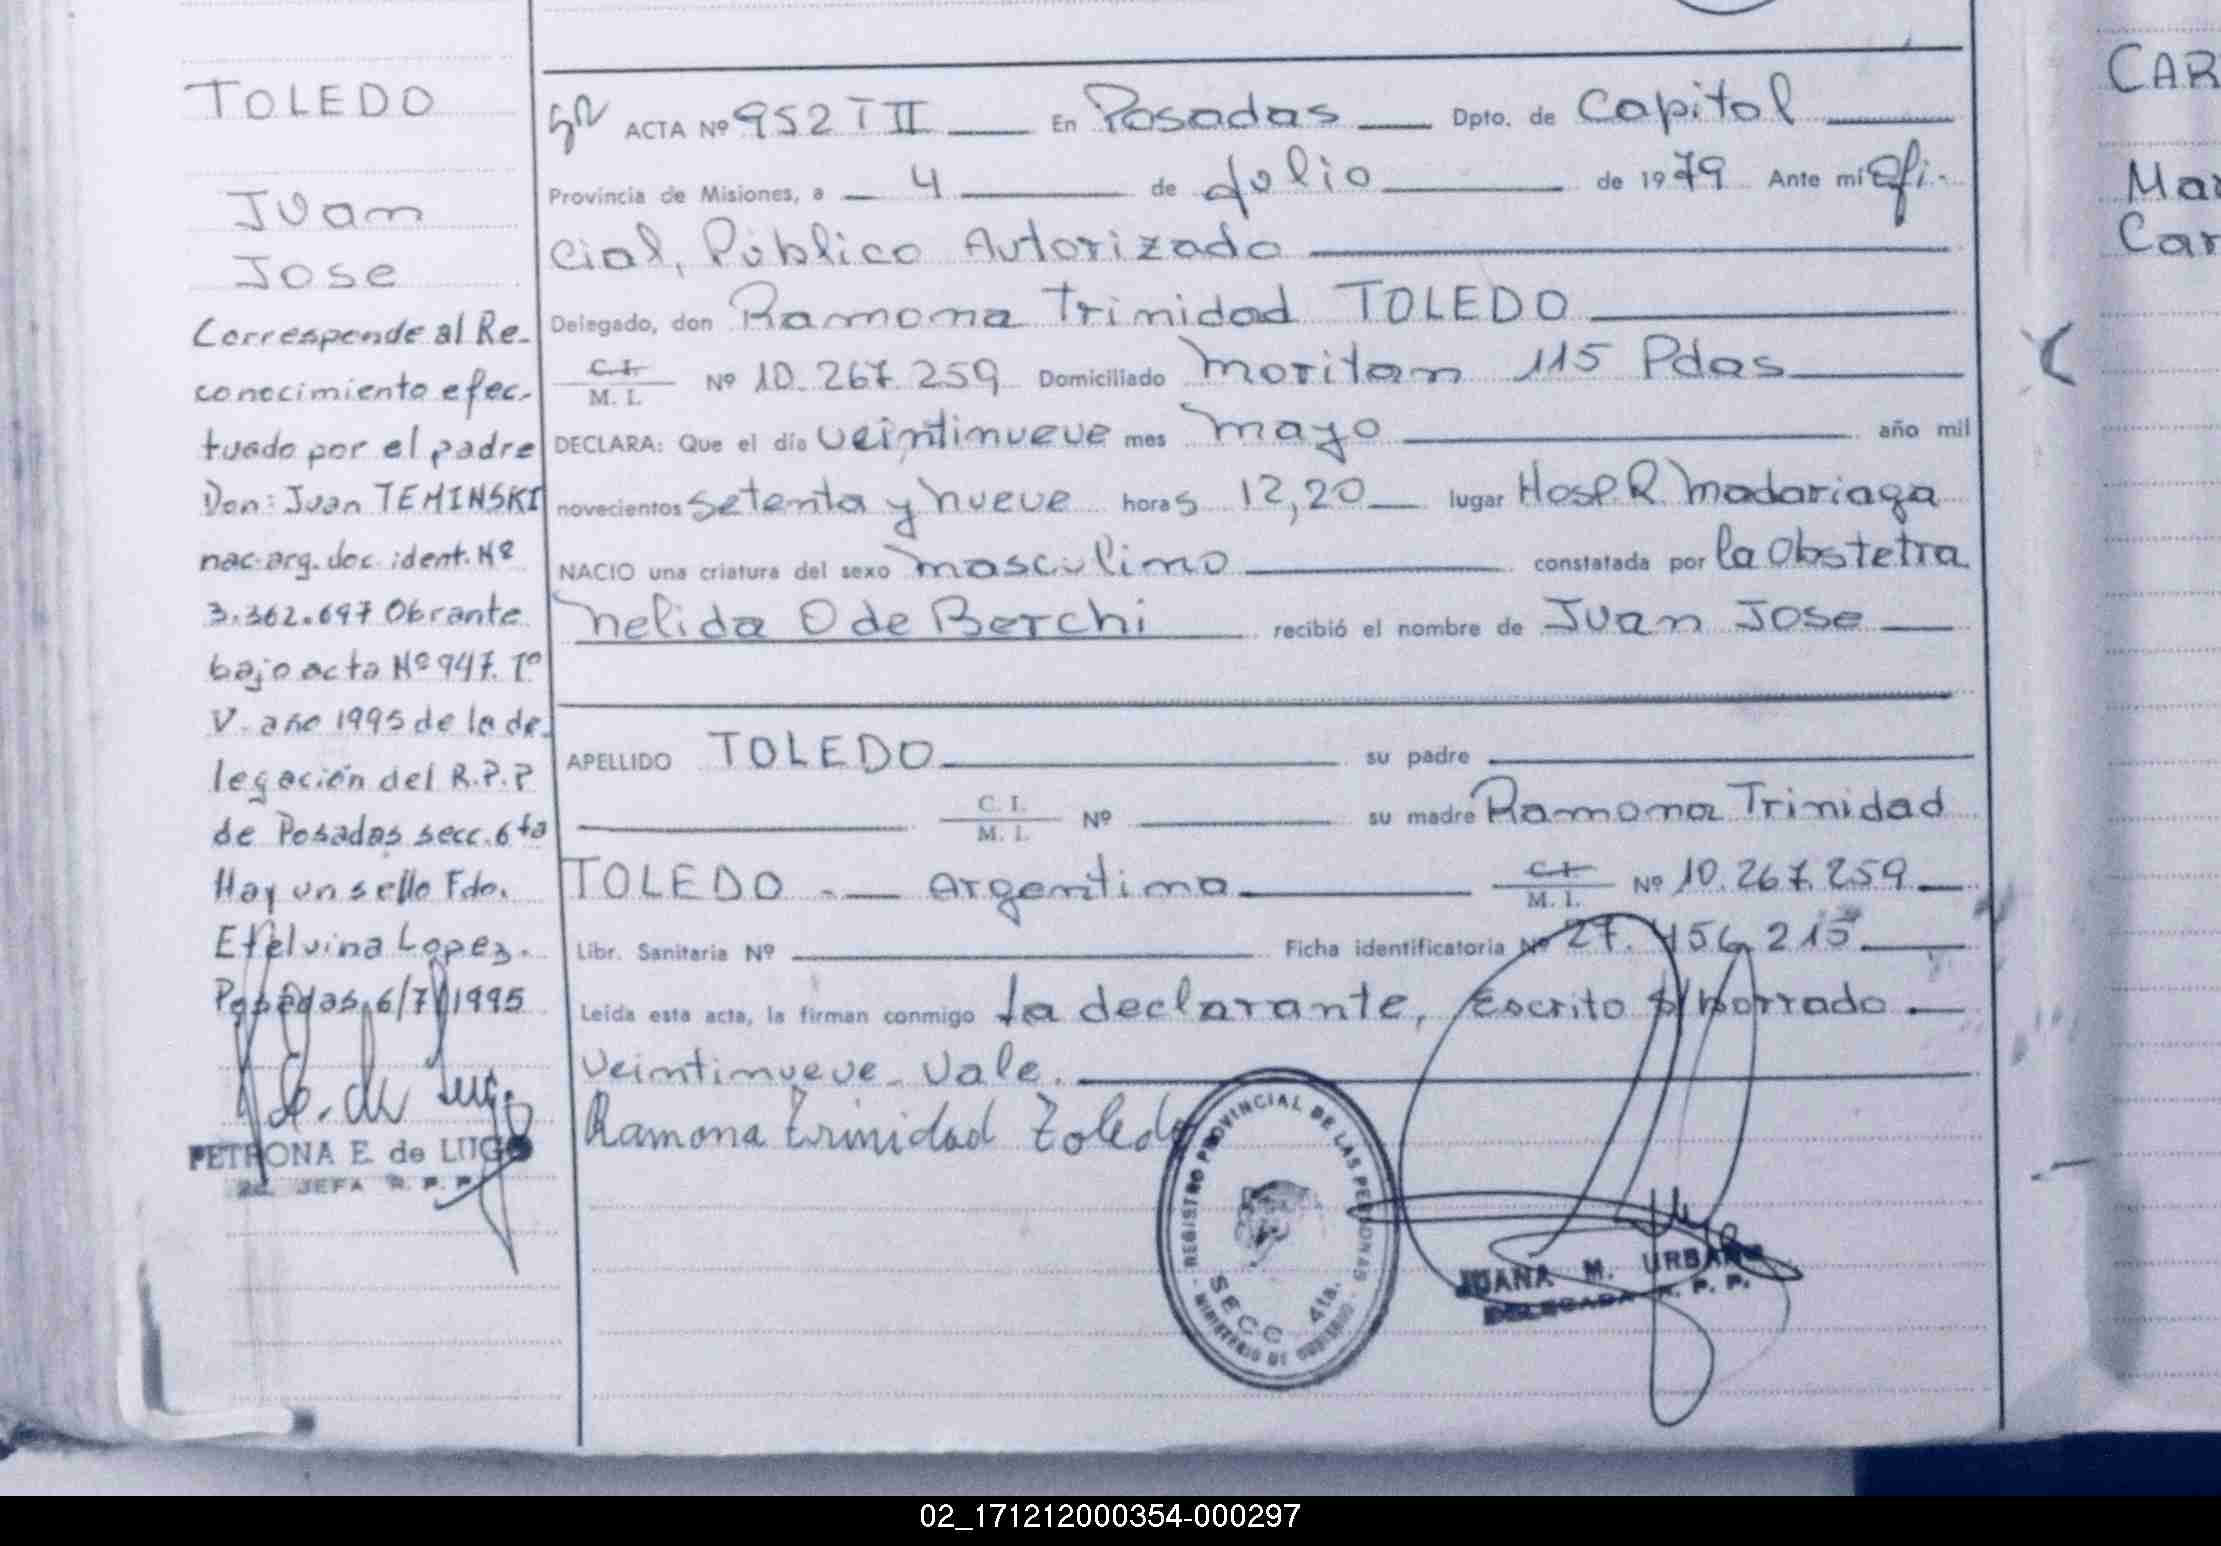 TOLEDO
Juan
Jose
Corresponde al Re-
conocimiento efec-
tuado por el padre
Don: Juan TEMINSKI
nac. arg. doc. ident. Nº
3.362.697 Obrante
bajo acta Nº 947. Tº
V. año 1995 de la de-
legación del R.P.P
de Posadas secc. 6ta
Hay un sello Fdo.
Etelvina Lopez.
Posadas, 6/7/1995
PETRONA E. de LUGO
JEFA R. P. P.
ACTA Nº 952 T II En Posadas Dpto. de Capital
Provincia de Misiones, a 4 de Julio de 1979 Ante mi Ofi-
cial, Público Autorizado
Delegado, don Ramona Trinidad TOLEDO
C. I.
M. I. Nº 10.267.259 Domiciliado Moritan 115 Pdas
DECLARA: Que el día veintinueve mes Mayo año mil
novecientos setenta y nueve horas 12,20 lugar Hosp. R. Madariaga
NACIO una criatura del sexo masculino constatada por la Obstetra
Nelida O de Berchi recibió el nombre de Juan Jose
APELLIDO TOLEDO su padre
C. I.
M. I. Nº su madre Ramona Trinidad
TOLEDO.- Argentina C. I.
M. I. Nº 10.267.259
Libr. Sanitaria Nº Ficha identificatoria Nº 27.456.215
Leída esta acta, la firman conmigo la declarante, Escrito s/borrado
veintinueve. Vale.
Ramona Trinidad Toledo
REGISTRO PROVINCIAL DE LAS PERSONAS
SECC. 4ta.
MINISTERIO DE GOBIERNO
JUANA M. URBANO
DELEGADA R. P. P.
CAR
Mar
Car
02_171212000354-000297